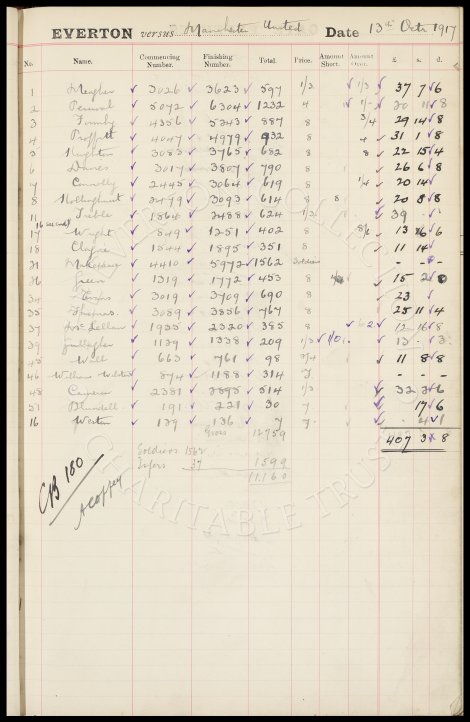 EVERTON versus Manchester United Date 13th Octr 1917
No. Name. Commencing Number. Finishing Number. Total. Price. Amount Short. Amount Over. £ s. d.
1 Meagher 3026 3623 597 1/3 1/3 37 7 6
2 Percival 5072 6304 1232 4 1/- 20 11 8
3 Formby 4356 5243 887 8 3/4 29 14 8
4 Proffitt 4047 4979 932 8 31 1 8
5 Knighton 3083 3765 682 8 8 22 15 4
6 Davies 3017 3807 790 8 26 6 8
7 Connolly 2445 3064 619 8 1/4 20 14
8 2479 3093 614 8 8 20 8 8
11 Tickle 1864 2488 624 1/3 39 -
(6 second)
17 Wright 849 1251 402 8 8/6 13 16 6
18 Clague 1544 1895 351 8 11 14
21 4410 5972 1562 Soldiers - - -
26 Green 1319 1772 453 8 15 2 0
34 3019 3709 690 8 23
35 Thomas 3089 3856 767 8 25 11 4
37 1935 2320 385 8 12 16 8
39 Gallagher 1129 1338 209 1/3 1/0 13 3
45 Will 663 761 98 2/4 11 8 8
46 William Webster 874 1188 314 J - - -
48 2381 2895 514 1/3 32 3 6
51 Blundell 191 221 30 7 17 6
16 Weston 129 136 7 7 4 1
Gross 12759 407 3 8
Soldiers 1562
37 1599
11160
CB 180